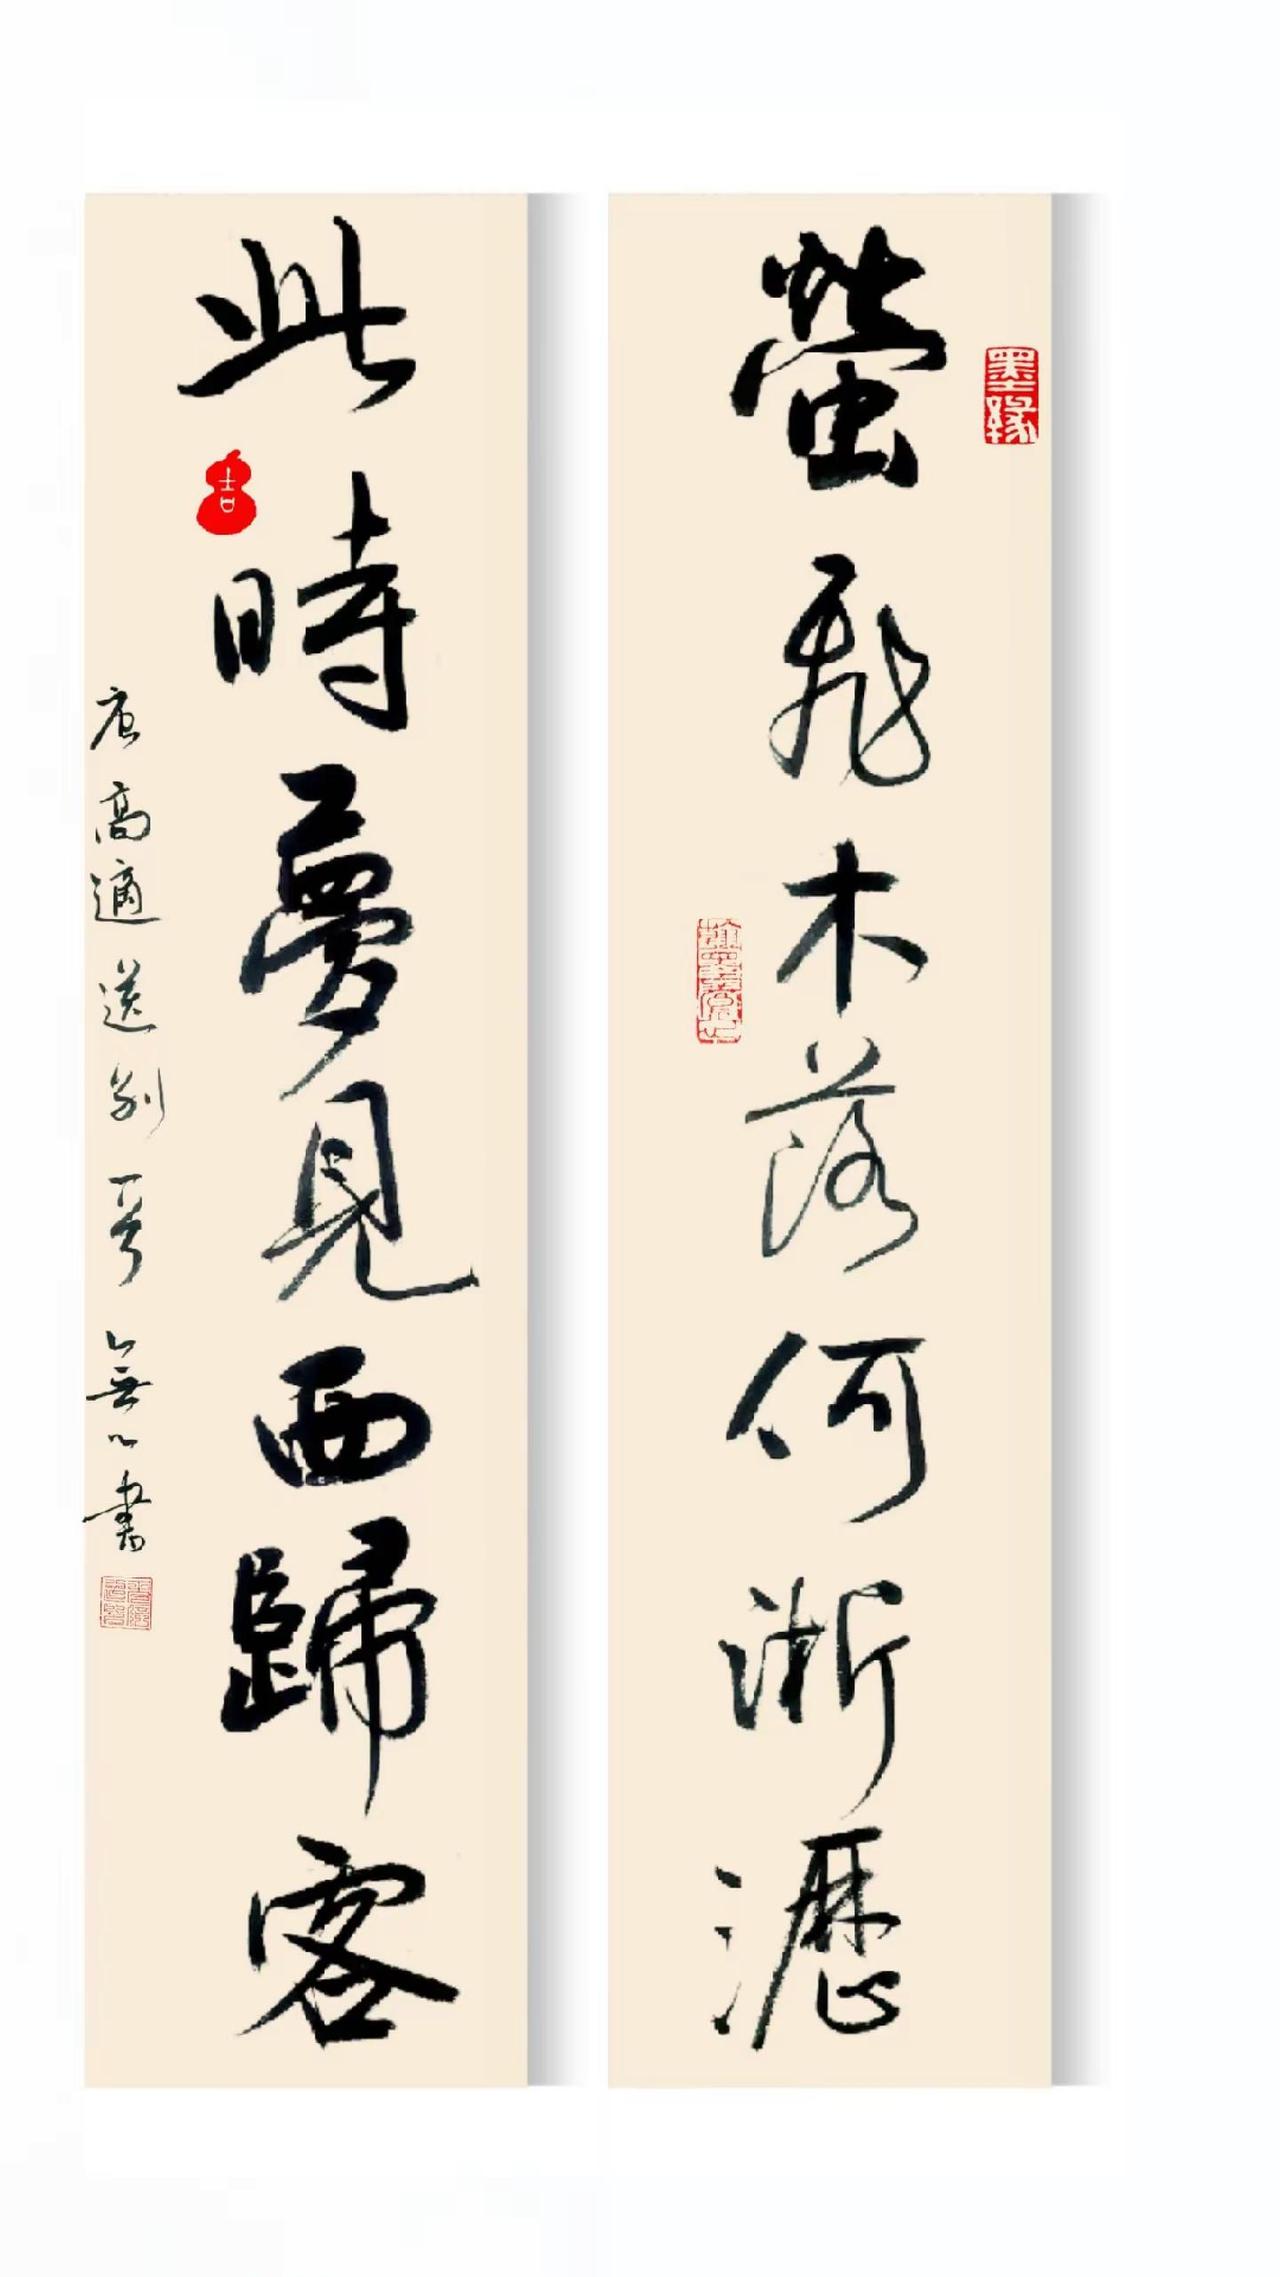 螢飛木落何淅瀝
此時夢見西歸客
唐高適送別 無心書
墨緣
吉